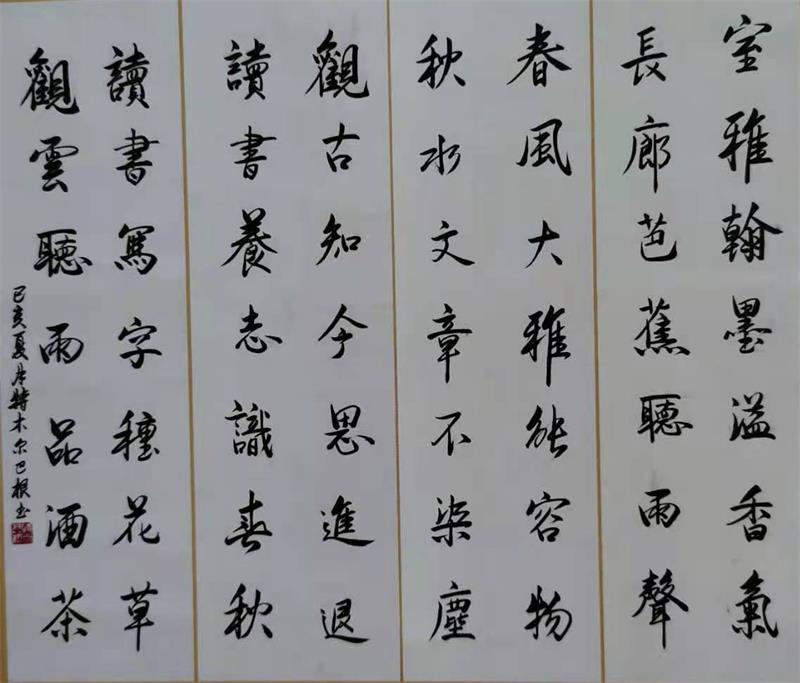 室雅翰墨溢香氣
長廊芭蕉聽雨聲
春風大雅能容物
秋水文章不染塵
觀古知今思進退
讀書養志識春秋
讀書寫字種花草
觀雲聽雨品酒茶
己亥夏月特木尔巴根书